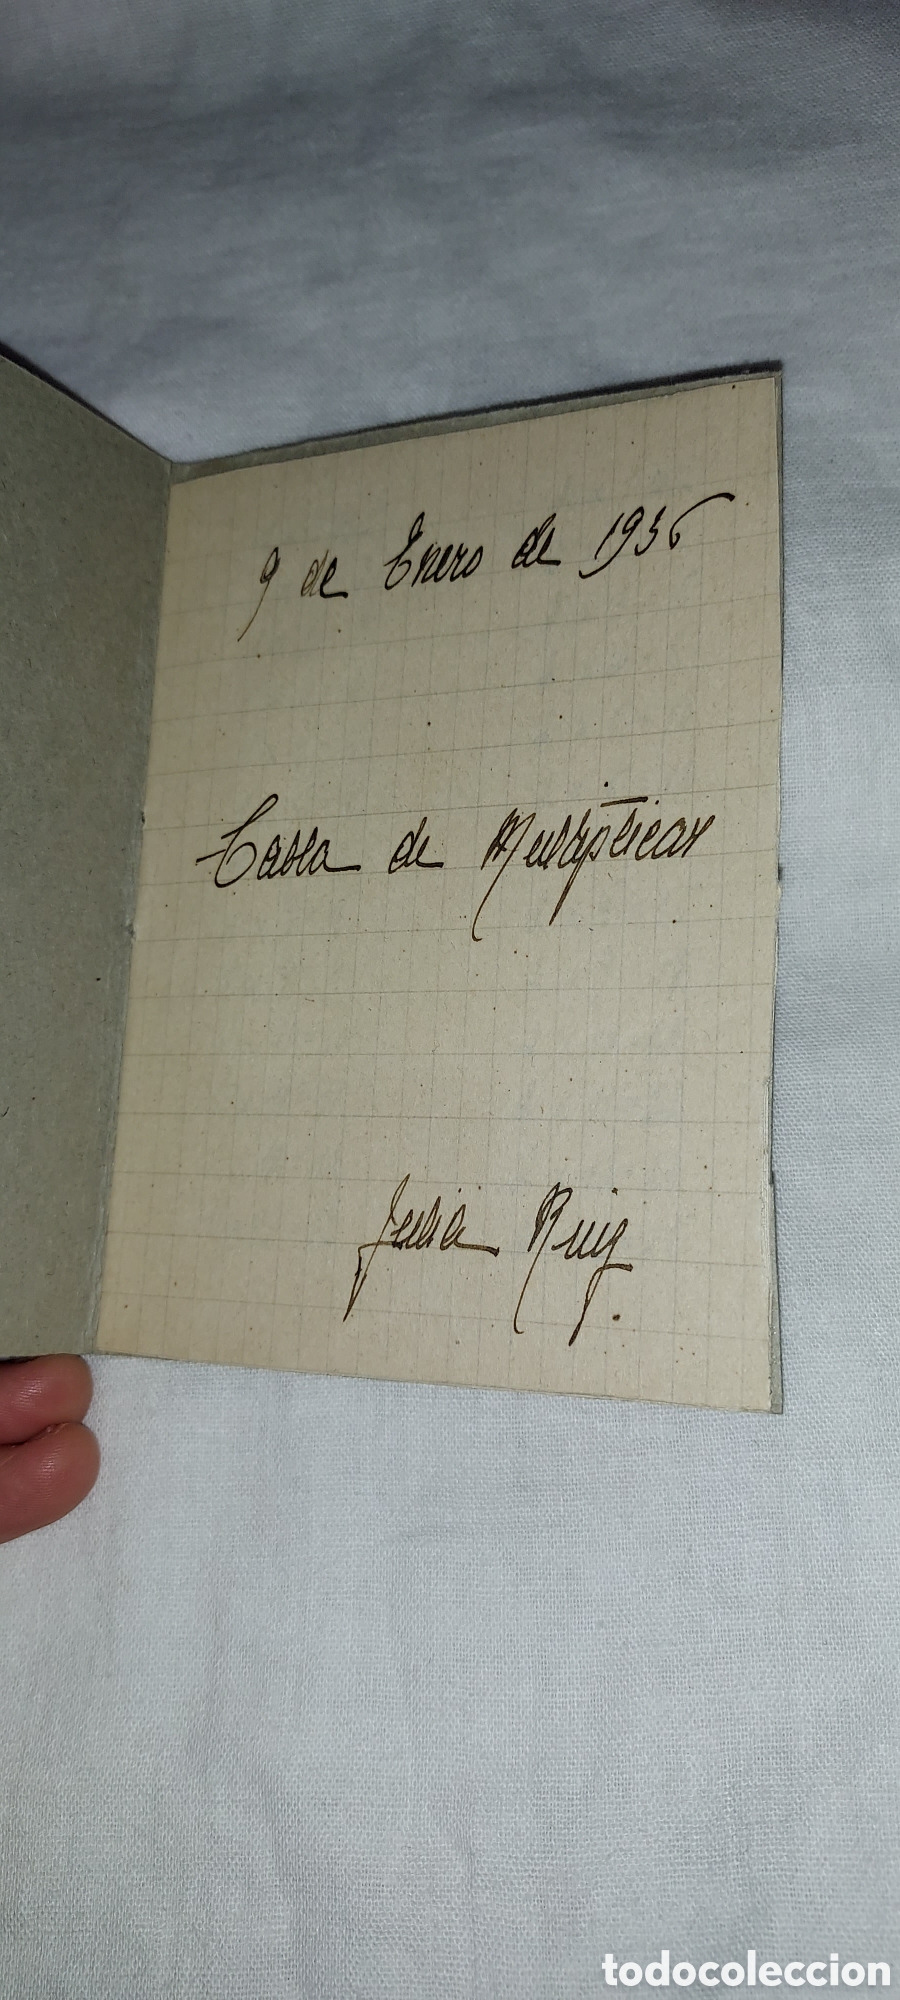 9 de Enero de 1936
Tabla de Multiplicar
Julia Ruiz.
todocoleccion